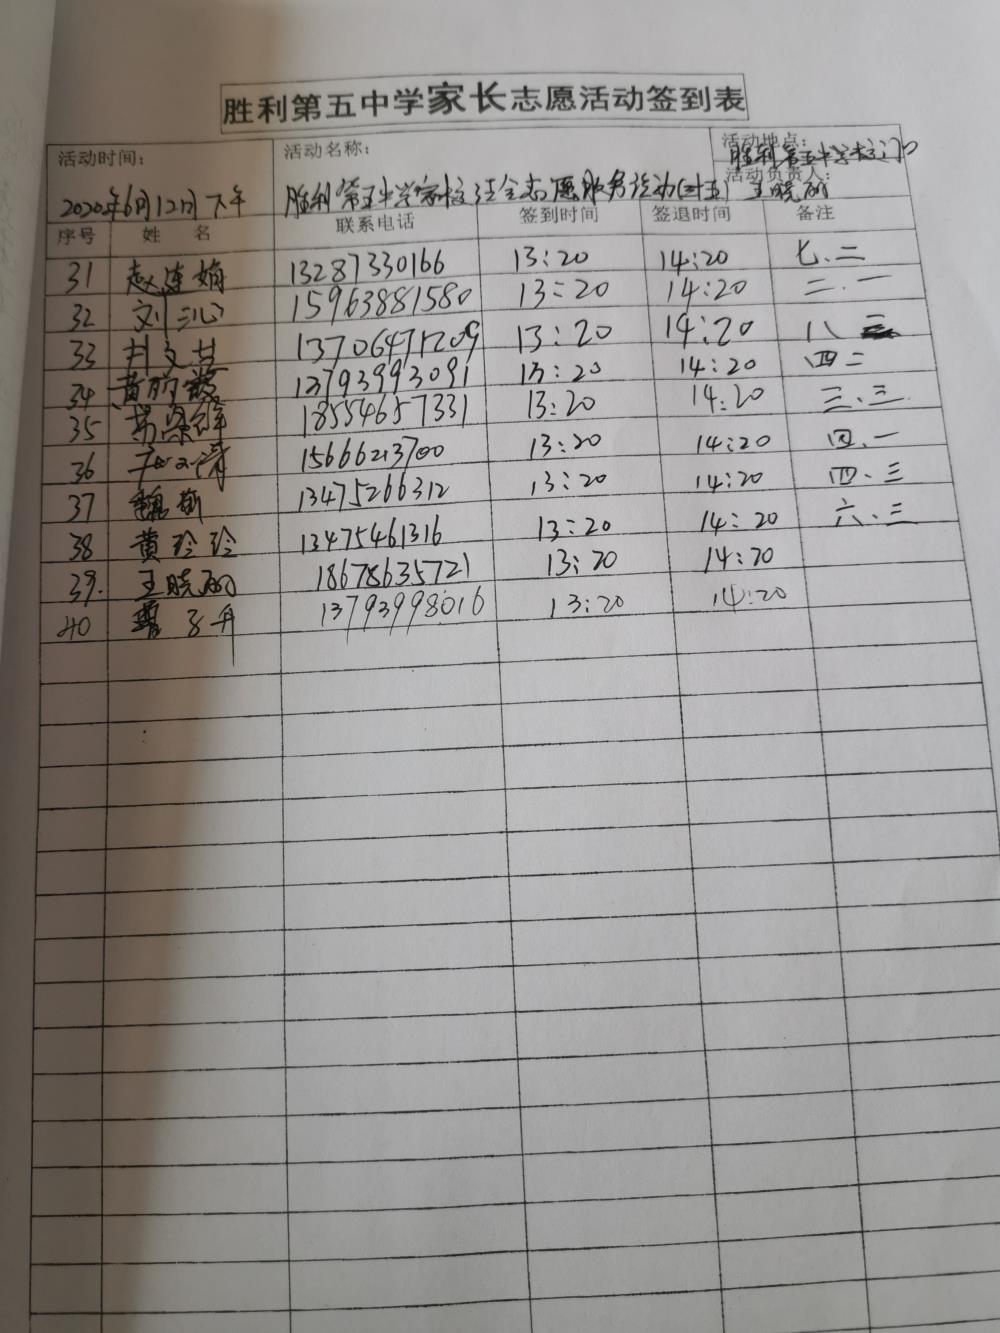 胜利第五中学家长志愿活动签到表
活动时间： 活动名称： 活动地点：
胜利第五中学校门口
2020年6月12日下午 胜利第五中学家校社会志愿服务活动(三十五) 活动负责人： 王晓丽
序号 姓 名 联系电话 签到时间 签退时间 备注
31 赵连娟 13287330166 13:20 14:20 七.二
32 刘沁 15963881580 13:20 14:20 二.一
33 13706471209 13:20 14:20 八 三
34 黄丽霞 13793993091 13:20 14:20 四二
35 18554657331 13:20 14:20 三.三
36 15666213700 13:20 14:20 四.一
37 魏 13475266312 13:20 14:20 四.三
38 黄玲玲 13475461316 13:20 14:20 六.三
39. 王晓丽 18678635721 13:20 14:20
40 子丹 13793998016 13:20 14:20